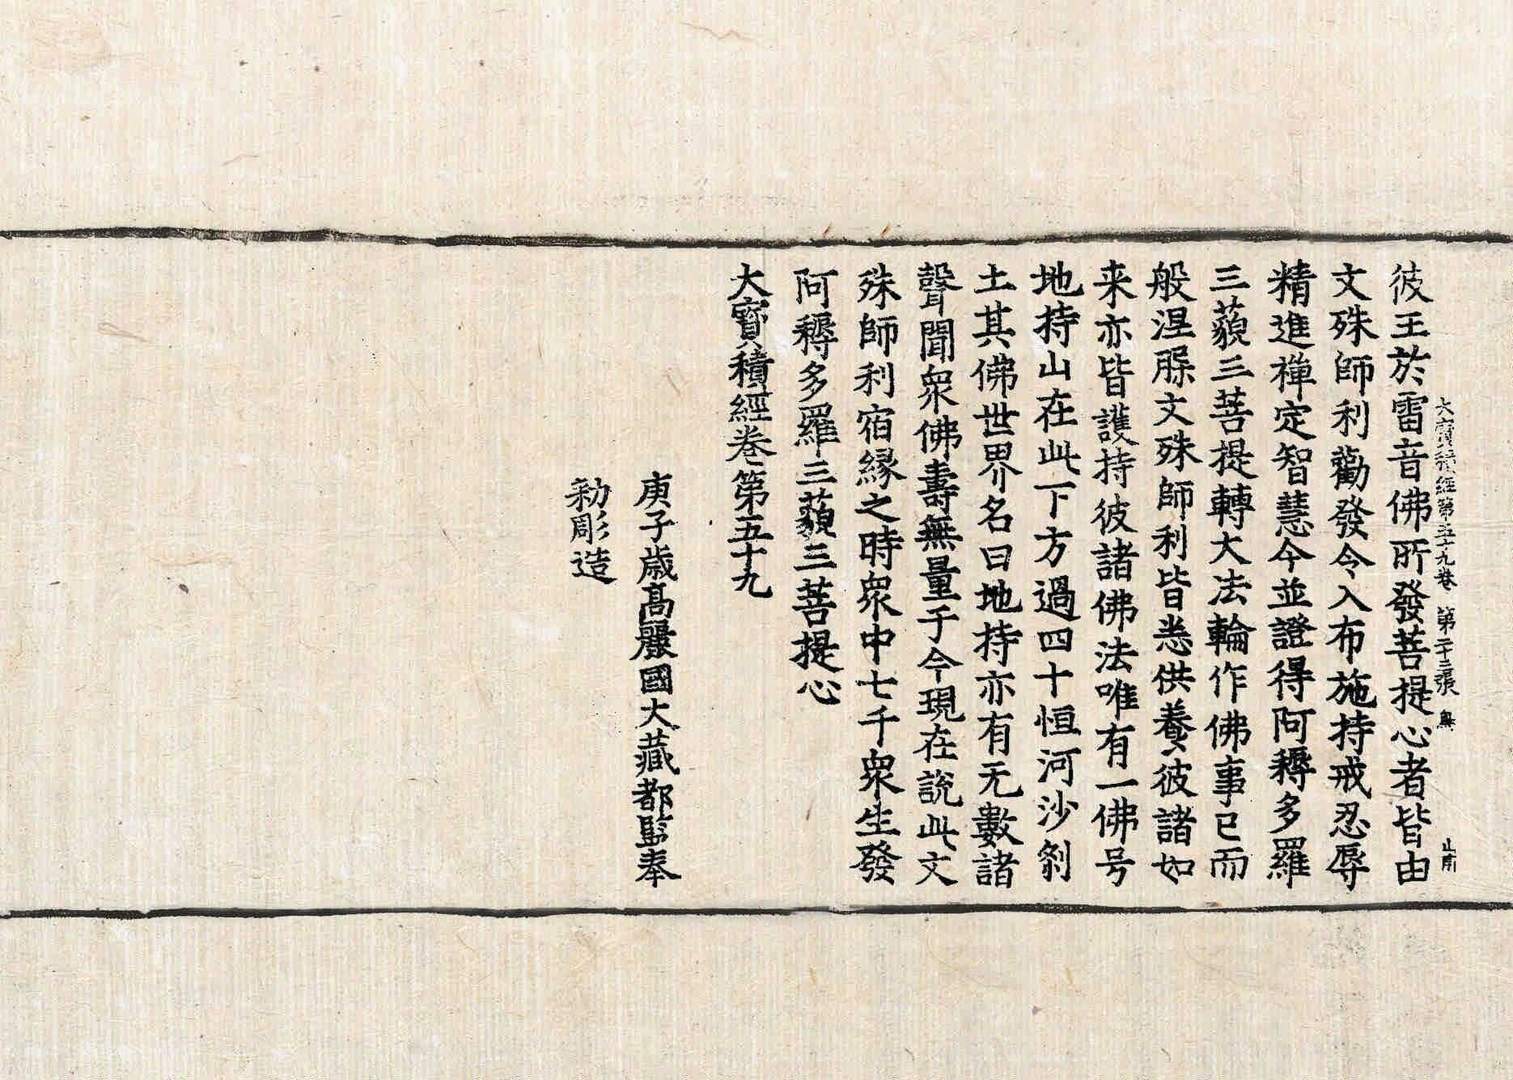 大寶積經第五十九卷 第二十三張 無
彼王於雷音佛所發菩提心者皆由
文殊師利勸發令入布施持戒忍辱
精進禪定智慧今並證得阿耨多羅
三藐三菩提轉大法輪作佛事已而
般涅槃文殊師利皆悉供養彼諸如
来亦皆護持彼諸佛法唯有一佛号
地持山在此下方過四十恒河沙剎
土其佛世界名曰地持亦有无數諸
聲聞衆佛壽無量于今現在說此文
殊師利宿縁之時衆中七千衆生發
阿耨多羅三藐三菩提心
大寶積經卷第五十九
庚子歲高麗國大藏都監奉
勑彫造